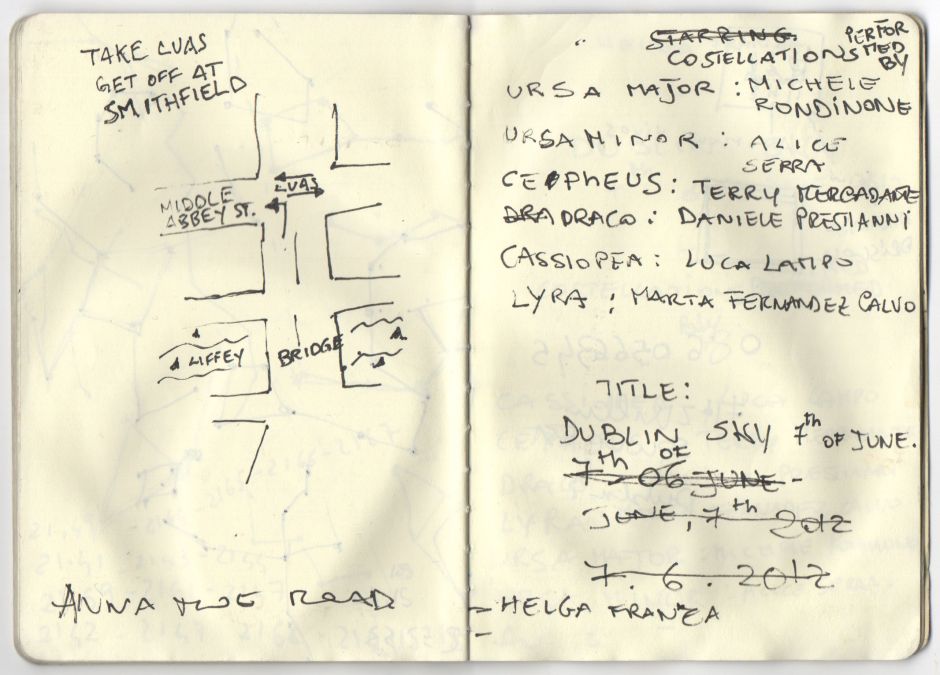 TAKE LUAS
GET OFF AT
SMITHFIELD
LUAS
MIDDLE
ABBEY ST.
LIFFEY
BRIDGE
ANNA THE ROAD
STARRING
COSTELLATIONS PERFORMED BY
URSA MAJOR : MICHELE
RONDINONE
URSA MINOR : ALICE
SERRA
CEPHEUS : TERRY MERCADANTE
DRA DRACO : DANIELE PRESTIANNI
CASSIOPEA : LUCA LAMPO
LYRA : MARTA FERNANDEZ CALVO
TITLE:
DUBLIN SKY 7th OF JUNE.
7th OF 06 JUNE -
JUNE, 7th 2012
7. 6. 2012
- HELGA FRANZA
-